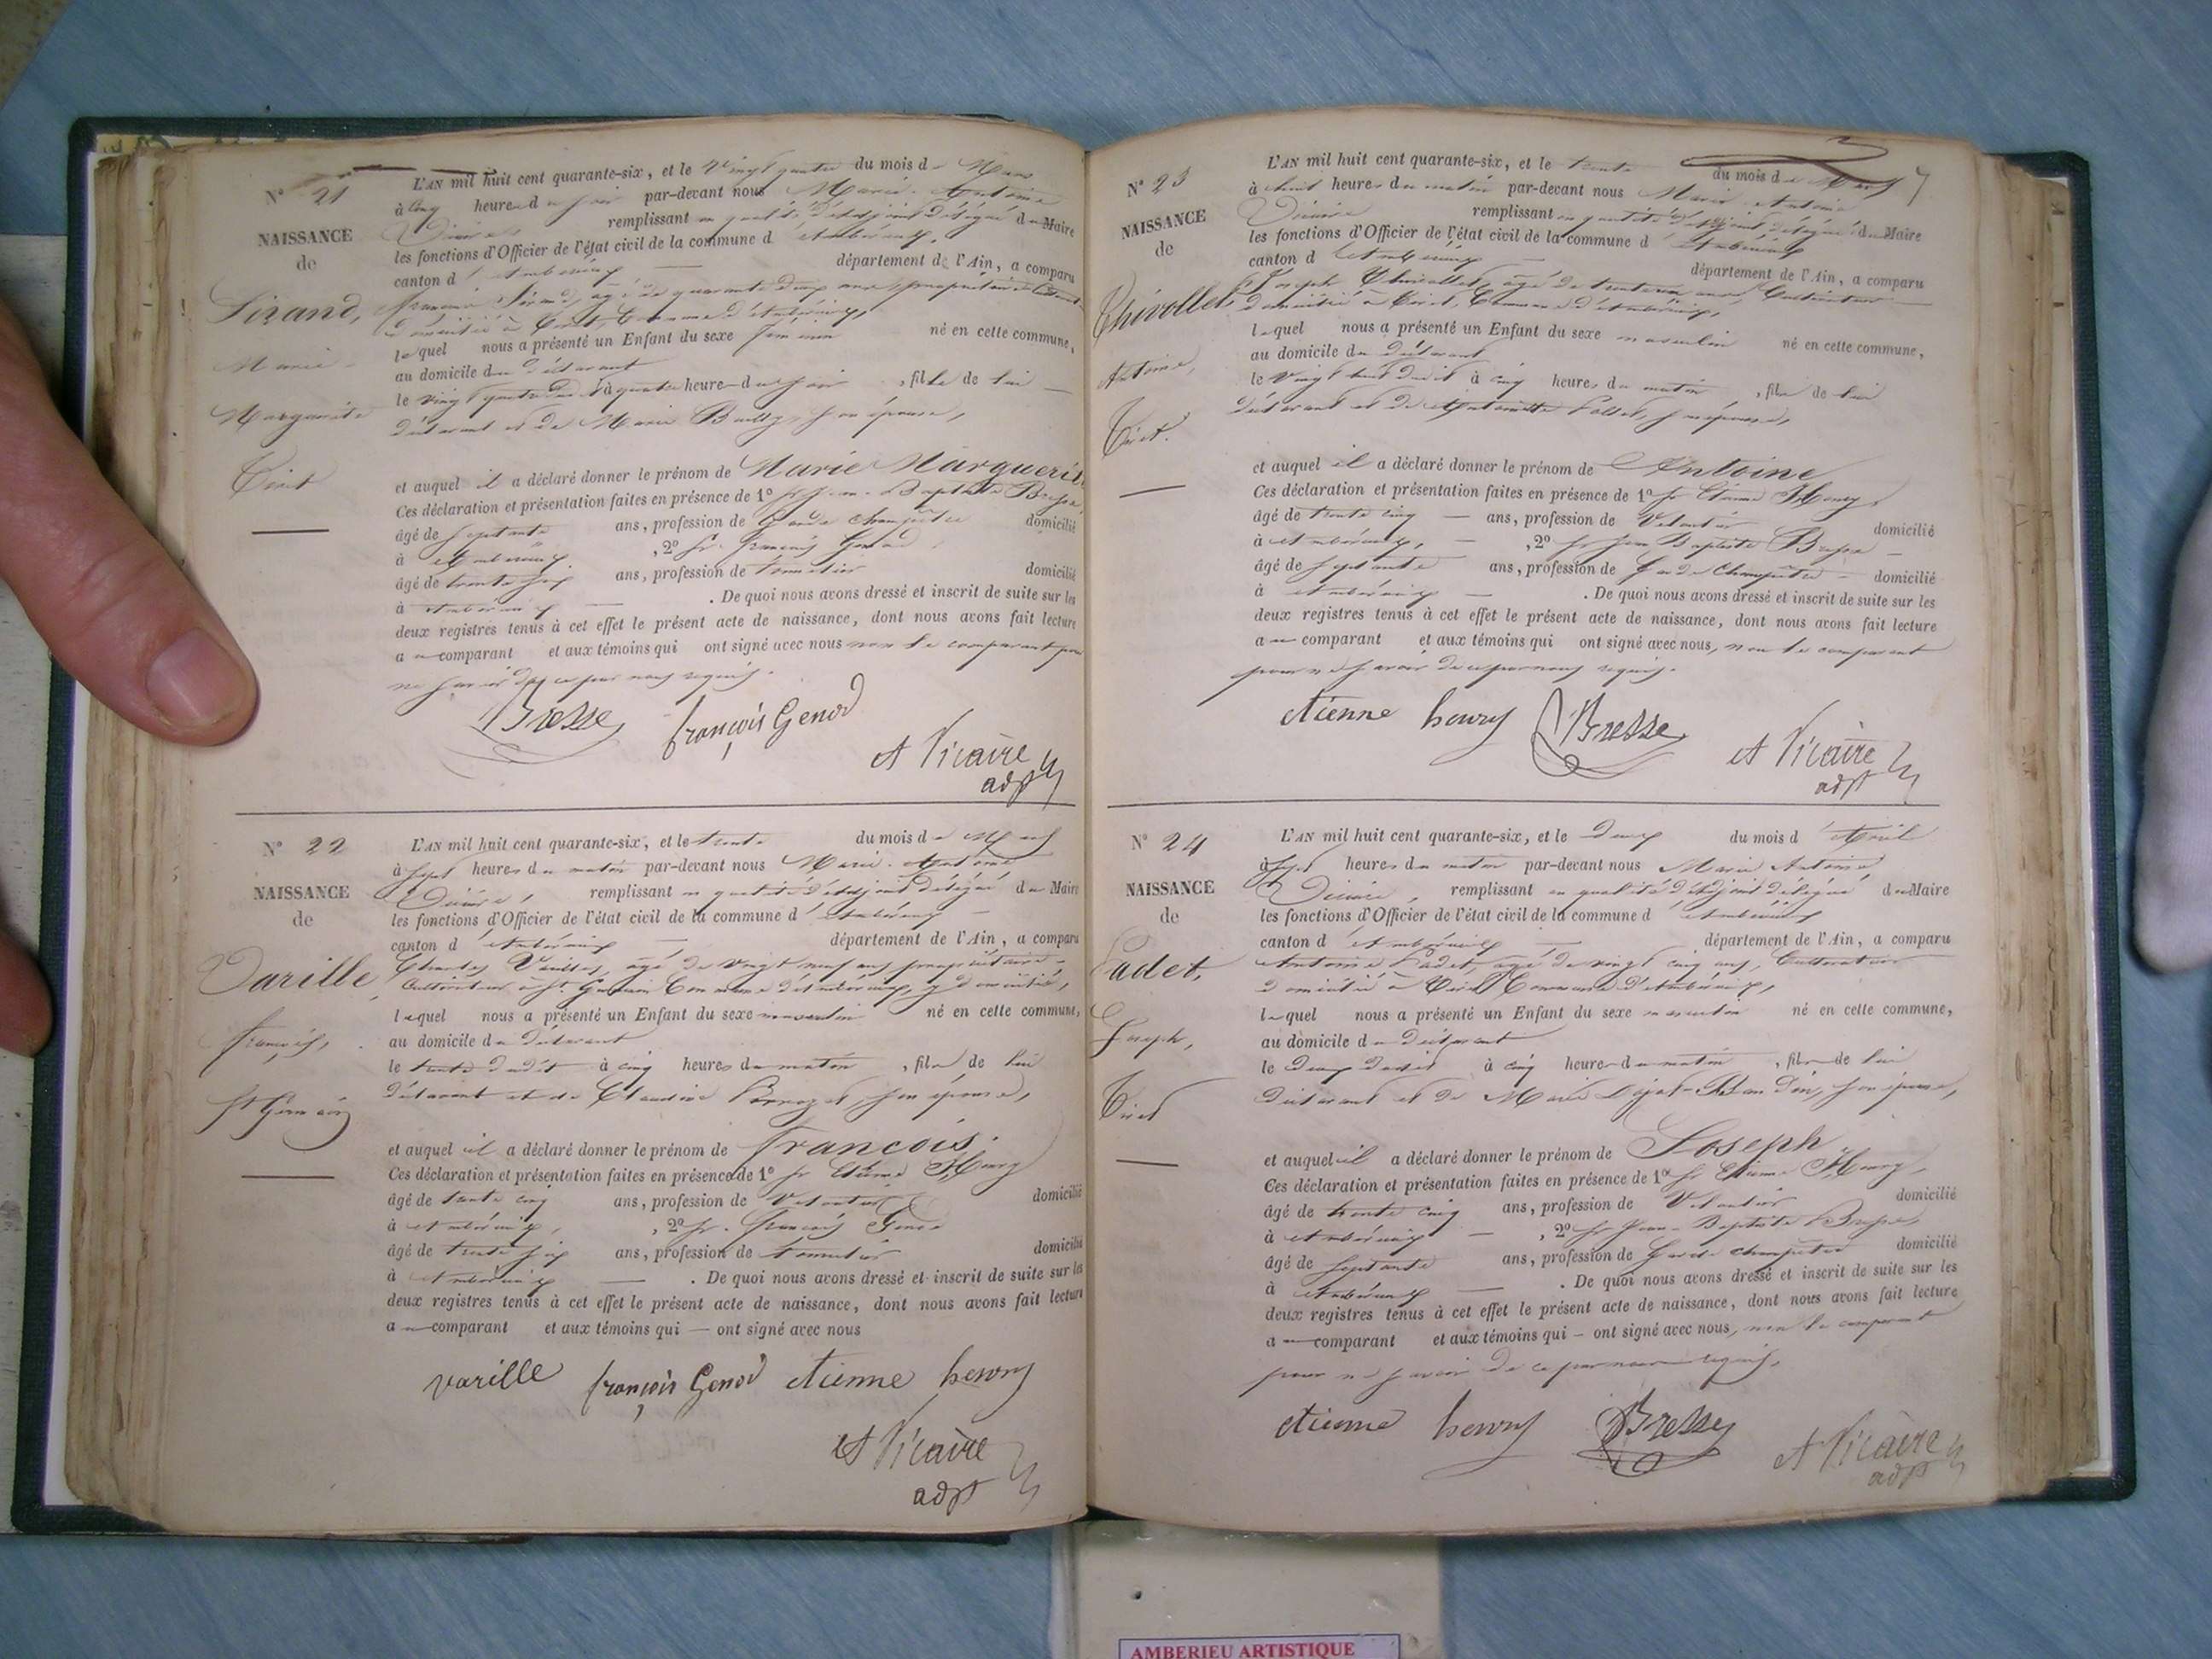 N° 21
NAISSANCE
de
Sirand,
Marie
Marguerite
Tiret
L'AN mil huit cent quarante-six, et le vingt quatre du mois de Mars
à cinq heures du soir par-devant nous Marie Antoine
Vicaire remplissant en qualité d'adjoint délégué du Maire
les fonctions d'Officier de l'état civil de la commune d'Ambérieux,
canton d'Ambérieux — département de l'Ain, a comparu
François Sirand, âgé de quarante deux ans, propriétaire
domicilié à Tiret, Commune d'Ambérieux,
lequel nous a présenté un Enfant du sexe féminin né en cette commune,
au domicile du déclarant
le vingt quatre dudit à quatre heures du soir, fille de lui —
déclarant et de Marie son épouse,
et auquel il a déclaré donner le prénom de Marie Marguerite
Ces déclaration et présentation faites en présence de 1° Sr Jean Baptiste Bresse,
âgé de septante ans, profession de Garde champêtre domicilié
à Ambérieux, 2° Sr François Genod
âgé de trente six ans, profession de domicilié
à Ambérieux — . De quoi nous avons dressé et inscrit de suite sur les
deux registres tenus à cet effet le présent acte de naissance, dont nous avons fait lecture
au comparant et aux témoins qui ont signé avec nous non le comparant pour
ne savoir de ce par nous requis.
Bresse françois Genod
A Vicaire
adjt
N° 22
NAISSANCE
de
Varille,
françois,
St Germain
L'AN mil huit cent quarante-six, et le trente du mois de Mars
à sept heures du matin par-devant nous Marie Antoine
Vicaire, remplissant en qualité d'adjoint délégué du Maire
les fonctions d'Officier de l'état civil de la commune d'Ambérieux —
canton d'Ambérieux — département de l'Ain, a comparu
Charles Varille, âgé de vingt neuf ans, propriétaire
Cultivateur à St Germain Commune d'Ambérieux, y domicilié,
lequel nous a présenté un Enfant du sexe masculin né en cette commune,
au domicile du déclarant
le trente dudit à cinq heures du matin, fils de lui
déclarant et de Claudine son épouse,
et auquel il a déclaré donner le prénom de françois.
Ces déclaration et présentation faites en présence de 1° Sr Etienne Henry
âgé de trente cinq ans, profession de domicilié
à Ambérieux, 2° Sr. François Genod
âgé de trente six ans, profession de domicilié
à Ambérieux — . De quoi nous avons dressé et inscrit de suite sur les
deux registres tenus à cet effet le présent acte de naissance, dont nous avons fait lecture
au comparant et aux témoins qui — ont signé avec nous
varille françois Genod etienne henry
A Vicaire
adjt
N° 23
NAISSANCE
de
Chivollet
Antoine,
Tiret.
L'AN mil huit cent quarante-six, et le trente du mois de Mars
à huit heures du matin par-devant nous Marie Antoine
Vicaire remplissant en qualité d'adjoint délégué du Maire
les fonctions d'Officier de l'état civil de la commune d'Ambérieux
canton d'Ambérieux — département de l'Ain, a comparu
Joseph Chivollet, âgé de trente ans, Cultivateur
domicilié à Tiret, Commune d'Ambérieux,
lequel nous a présenté un Enfant du sexe masculin né en cette commune,
au domicile du déclarant
le vingt huit dudit à cinq heures du matin, fils de lui
déclarant et de Antoinette son épouse,
et auquel il a déclaré donner le prénom de Antoine
Ces déclaration et présentation faites en présence de 1° Sr Etienne Henry
âgé de trente cinq — ans, profession de domicilié
à Ambérieux, — , 2° Sr Jean Baptiste Bresse —
âgé de septante ans, profession de Garde Champêtre — domicilié
à Ambérieux — . De quoi nous avons dressé et inscrit de suite sur les
deux registres tenus à cet effet le présent acte de naissance, dont nous avons fait lecture
au comparant et aux témoins qui ont signé avec nous, non le comparant
pour ne savoir de ce par nous requis.
etienne henry Bresse
A Vicaire
adjt
N° 24
NAISSANCE
de
Cadet,
Joseph,
Tiret
L'AN mil huit cent quarante-six, et le deux du mois d'Avril
à sept heures du matin par-devant nous Marie Antoine
Vicaire, remplissant en qualité d'adjoint délégué du Maire
les fonctions d'Officier de l'état civil de la commune d'Ambérieux
canton d'Ambérieux — département de l'Ain, a comparu
Antoine Cadet, âgé de vingt cinq ans, Cultivateur
domicilié à Tiret Commune d'Ambérieux,
lequel nous a présenté un Enfant du sexe masculin né en cette commune,
au domicile du déclarant
le deux dudit à cinq heures du matin, fils de lui
déclarant et de Marie son épouse,
et auquel il a déclaré donner le prénom de Joseph
Ces déclaration et présentation faites en présence de 1° Sr Etienne Henry,
âgé de trente cinq ans, profession de domicilié
à Ambérieux — , 2° Sr Jean-Baptiste Bresse,
âgé de septante ans, profession de Garde champêtre domicilié
à Ambérieux — . De quoi nous avons dressé et inscrit de suite sur les
deux registres tenus à cet effet le présent acte de naissance, dont nous avons fait lecture
au comparant et aux témoins qui — ont signé avec nous, non le comparant
pour ne savoir de ce par nous requis,
etienne henry Bresse
A Vicaire
adjt
AMBERIEU ARTISTIQUE